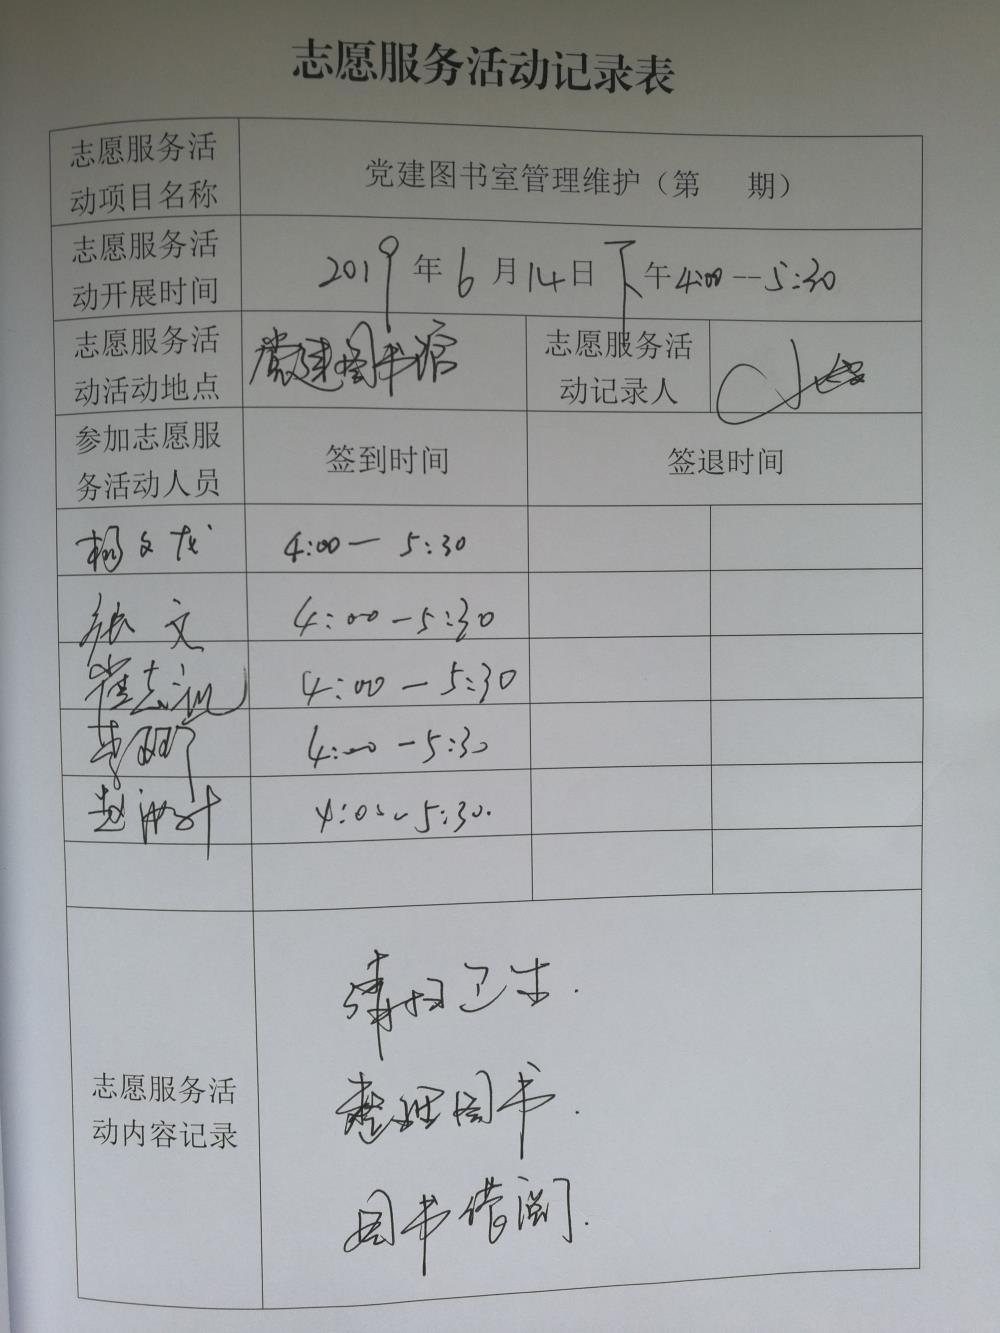 志愿服务活动记录表
志愿服务活
动项目名称
党建图书室管理维护（第 期）
志愿服务活
动开展时间
2019年6月14日下午4:00--5:30
志愿服务活
动活动地点
党建图书馆
志愿服务活
动记录人
参加志愿服
务活动人员
签到时间
签退时间
杨文龙 4:00—5:30
张文 4:00—5:30
4:00—5:30
4:00—5:30
4:00—5:30.
志愿服务活
动内容记录
清扫卫生.
整理图书.
图书借阅.